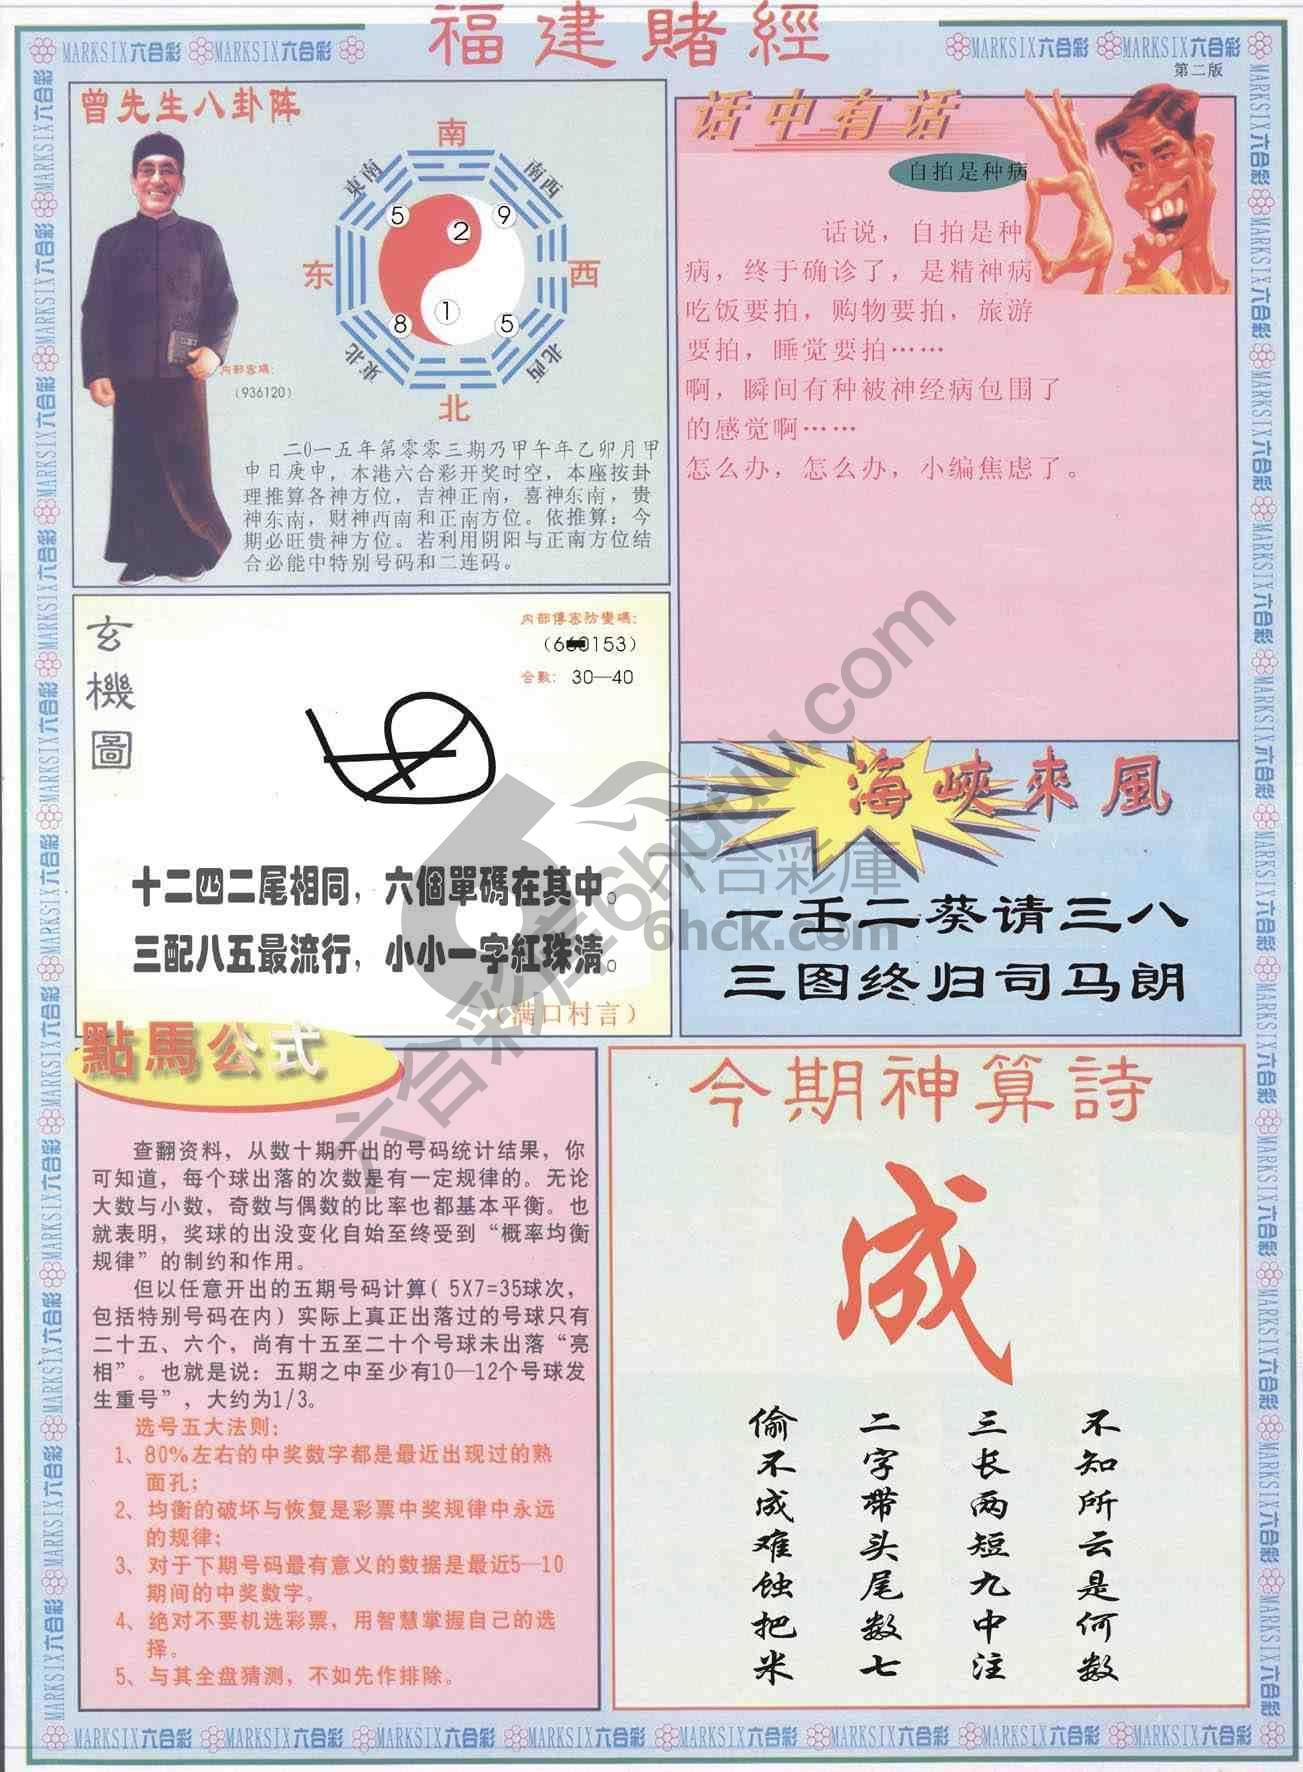 福建賭經
MARKSIX六合彩 MARKSIX六合彩
MARKSIX六合彩 MARKSIX六合彩
第二版
曾先生八卦阵
南
東南
南西
5
9
2
东
西
1
8
5
東北
北西
北
内部密碼:
(936120)
二0一五年第零零三期乃甲午年乙卯月甲
申日庚申，本港六合彩开奖时空，本座按卦
理推算各神方位，吉神正南，喜神东南，贵
神东南，财神西南和正南方位。依推算：今
期必旺贵神方位。若利用阴阳与正南方位结
合必能中特别号码和二连码。
话中有话
自拍是种病
话说，自拍是种
病，终于确诊了，是精神病
吃饭要拍，购物要拍，旅游
要拍，睡觉要拍……
啊，瞬间有种被神经病包围了
的感觉啊……
怎么办，怎么办，小编焦虑了。
玄機圖
内部傳密防變碼:
153)
合數: 30—40
十二四二尾相同，六個單碼在其中。
三配八五最流行，小小一字紅珠清。
(满口村言)
海峽來風
一壬二葵请三八
三图终归司马朗
六合彩庫
6hck.com
六合彩库6huuu.com
點馬公式
查翻资料，从数十期开出的号码统计结果，你
可知道，每个球出落的次数是有一定规律的。无论
大数与小数，奇数与偶数的比率也都基本平衡。也
就表明，奖球的出没变化自始至终受到“概率均衡
规律”的制约和作用。
但以任意开出的五期号码计算( 5X7=35球次，
包括特别号码在内) 实际上真正出落过的号球只有
二十五、六个，尚有十五至二十个号球未出落“亮
相”。也就是说：五期之中至少有10—12个号球发
生重号”，大约为1/3。
选号五大法则：
1、80%左右的中奖数字都是最近出现过的熟
面孔；
2、均衡的破坏与恢复是彩票中奖规律中永远
的规律；
3、对于下期号码最有意义的数据是最近5—10
期间的中奖数字。
4、绝对不要机选彩票，用智慧掌握自己的选
择。
5、与其全盘猜测，不如先作排除。
今期神算詩
成
不知所云是何数
三长两短九中注
二字带头尾数七
偷不成难蚀把米
MARKSIX六合彩 MARKSIX六合彩 MARKSIX六合彩 MARKSIX六合彩 MARKSIX六合彩 MARKSIX六合彩 MARKSIX六合彩 MARKSIX六合彩